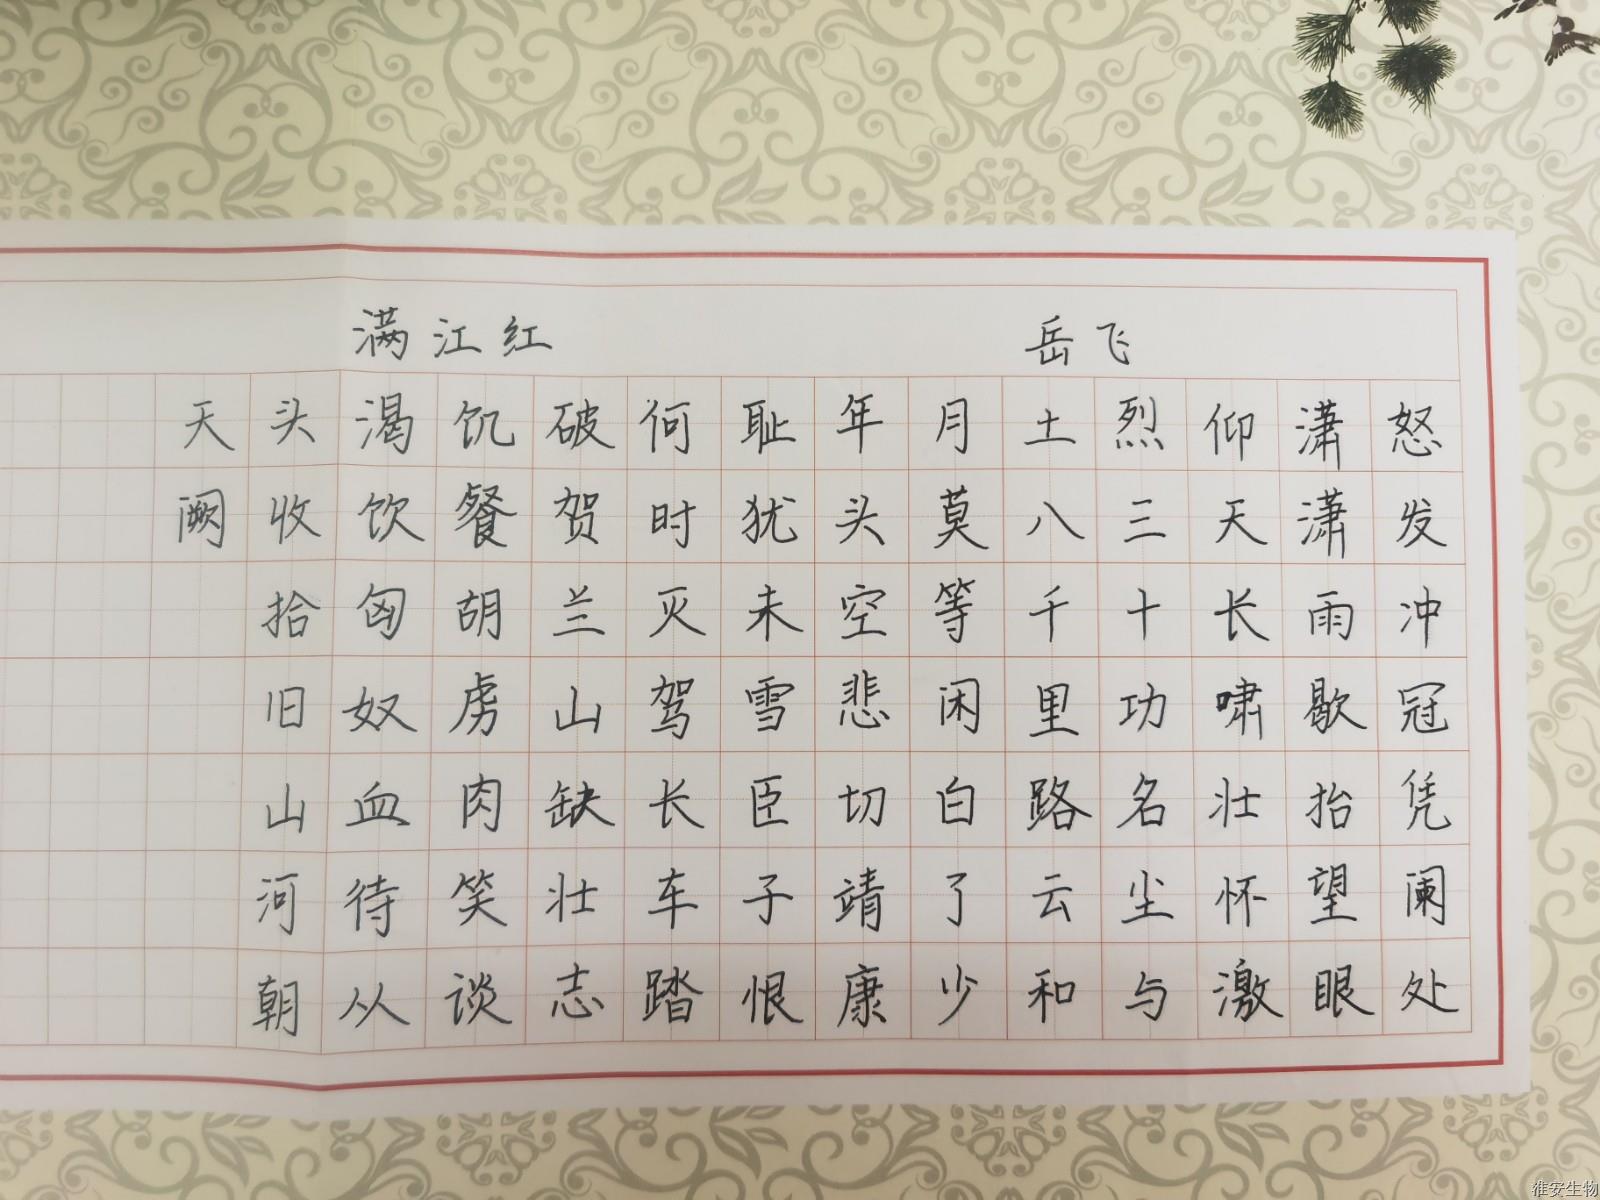 满江红
岳飞
怒发冲冠凭阑处
潇潇雨歇抬望眼
仰天长啸壮怀激
烈三十功名尘与
土八千里路云和
月莫等闲白了少
年头空悲切靖康
耻犹未雪臣子恨
何时灭驾长车踏
破贺兰山缺壮志
饥餐胡虏肉笑谈
渴饮匈奴血待从
头收拾旧山河朝
天阙
淮安生物